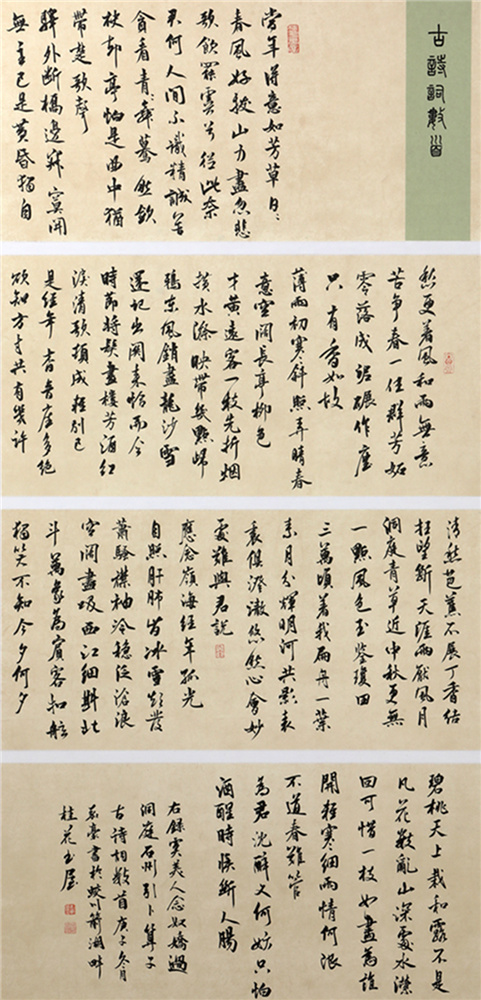 古詩詞數首
當年得意如芳草日〻
春風好拔山力盡忽悲
歌飲罷虞兮從此奈
君何人間不識精誠苦
貪看青〻舞驀然歛
袂却亭〻怕是曲中猶
帶楚歌聲
驛外斷橋邊寂寞開
無主已是黃昏獨自
愁更著風和雨無意
苦争春一任群芳妬
零落成泥碾作塵
只有香如故
薄雨初寒斜照弄晴春
意空闊長亭柳色
才黃遠客一枝先折烟
橫水際映帶幾點歸
鴉東風銷盡龍沙雪
還記出關來恰而今
時節將發畫樓芳酒紅
淚清歌頓成輕別已
是經年杳〻音塵多絕
欲知方寸共有幾許
清愁芭蕉不展丁香結
枉望斷天涯兩厭風月
洞庭青草近中秋更無
一點風色玉鑒瓊田
三萬頃著我扁舟一葉
素月分輝明河共影表
裏俱澄澈悠然心會妙
處難與君說
應念嶺海經年孤光
自照肝肺皆冰雪短髮
蕭騷襟袖冷穩泛滄浪
空闊盡吸西江細斟北
斗萬象為賓客扣舷
獨笑不知今夕何夕
碧桃天上栽和露不是
凡花數亂山深處水瀠
回可惜一枝如畫為誰
開輕寒細雨情何限
不道春難管
為君沈醉又何妨只怕
酒醒時候斷人腸
右錄虞美人念奴嬌過
洞庭石州引卜算子
古詩詞數首庚子冬月
石臺書於蛟川箭湖畔
桂花書屋